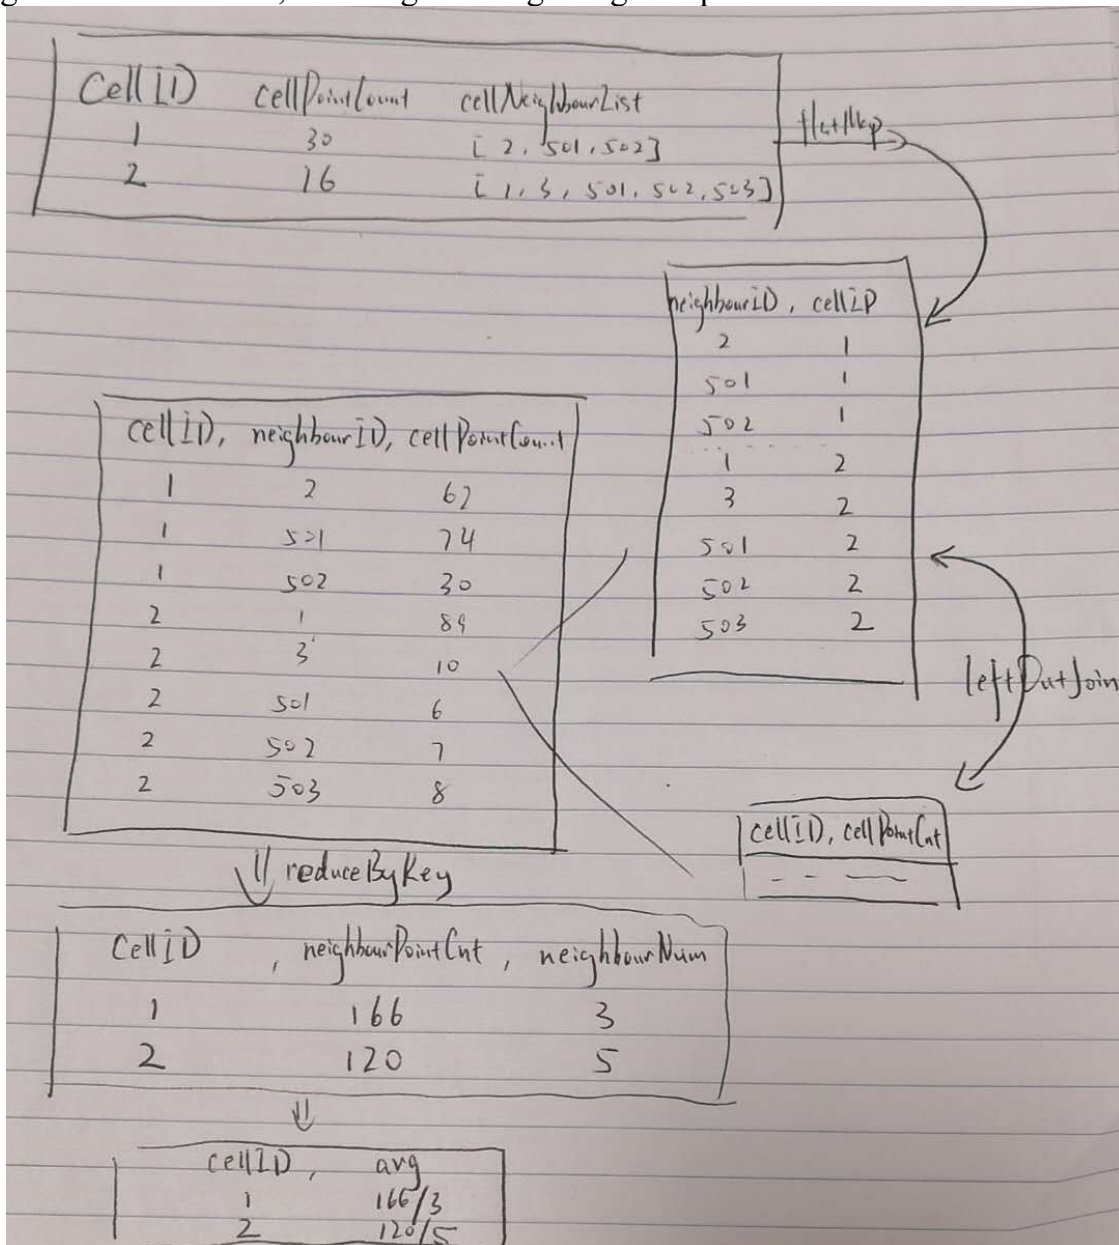 CellID cellPointCount cellNeighbourList
1 30 [2, 501, 502]
2 16 [1, 3, 501, 502, 503]
flatMap
neighbourID, cellID
2 1
501 1
502 1
1 2
3 2
501 2
502 2
503 2
leftOutJoin
cellID, cellPointCnt
cellID, neighbourID, cellPointCount
1 2 62
1 501 74
1 502 30
2 1 89
2 3 10
2 501 6
2 502 7
2 503 8
reduceByKey
CellID, neighbourPointCnt, neighbourNum
1 166 3
2 120 5
cellID, avg
1 166/3
2 120/5